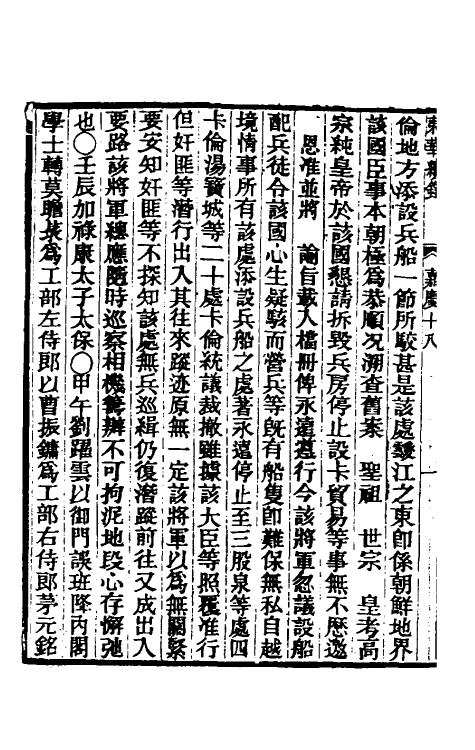 東華續錄　嘉慶十八
倫地方添設兵船一節所駁甚是該處靉江之東卽係朝鮮地界
該國臣事本朝極爲恭順况溯查舊案　聖祖　世宗　皇考高
宗純皇帝於該國懇請拆毀兵房停止設卡貿易等事無不歷邀
恩准並將　諭旨載入檔冊俾永遠遵行今該將軍忽議設船
配兵徒令該國心生疑駭而營兵等旣有船隻卽難保無私自越
境情事所有該處添設兵船之處著永遠停止至三股泉等處四
卡倫湯寶城等二十處卡倫統議裁撤雖據該大臣等照覆准行
但奸匪等潛行出入其往來蹤迹原無一定該將軍以爲無關緊
要安知奸匪等不探知該處無兵巡緝仍復潛蹤前往又成出入
要路該將軍總應隨時巡察相機籌辦不可拘泥地段心存懈弛
也〇壬辰加祿康太子太保〇甲午劉躍雲以御門誤班降內閣
學士轉莫瞻菉爲工部左侍郎以曹振鏞爲工部右侍郎茅元銘